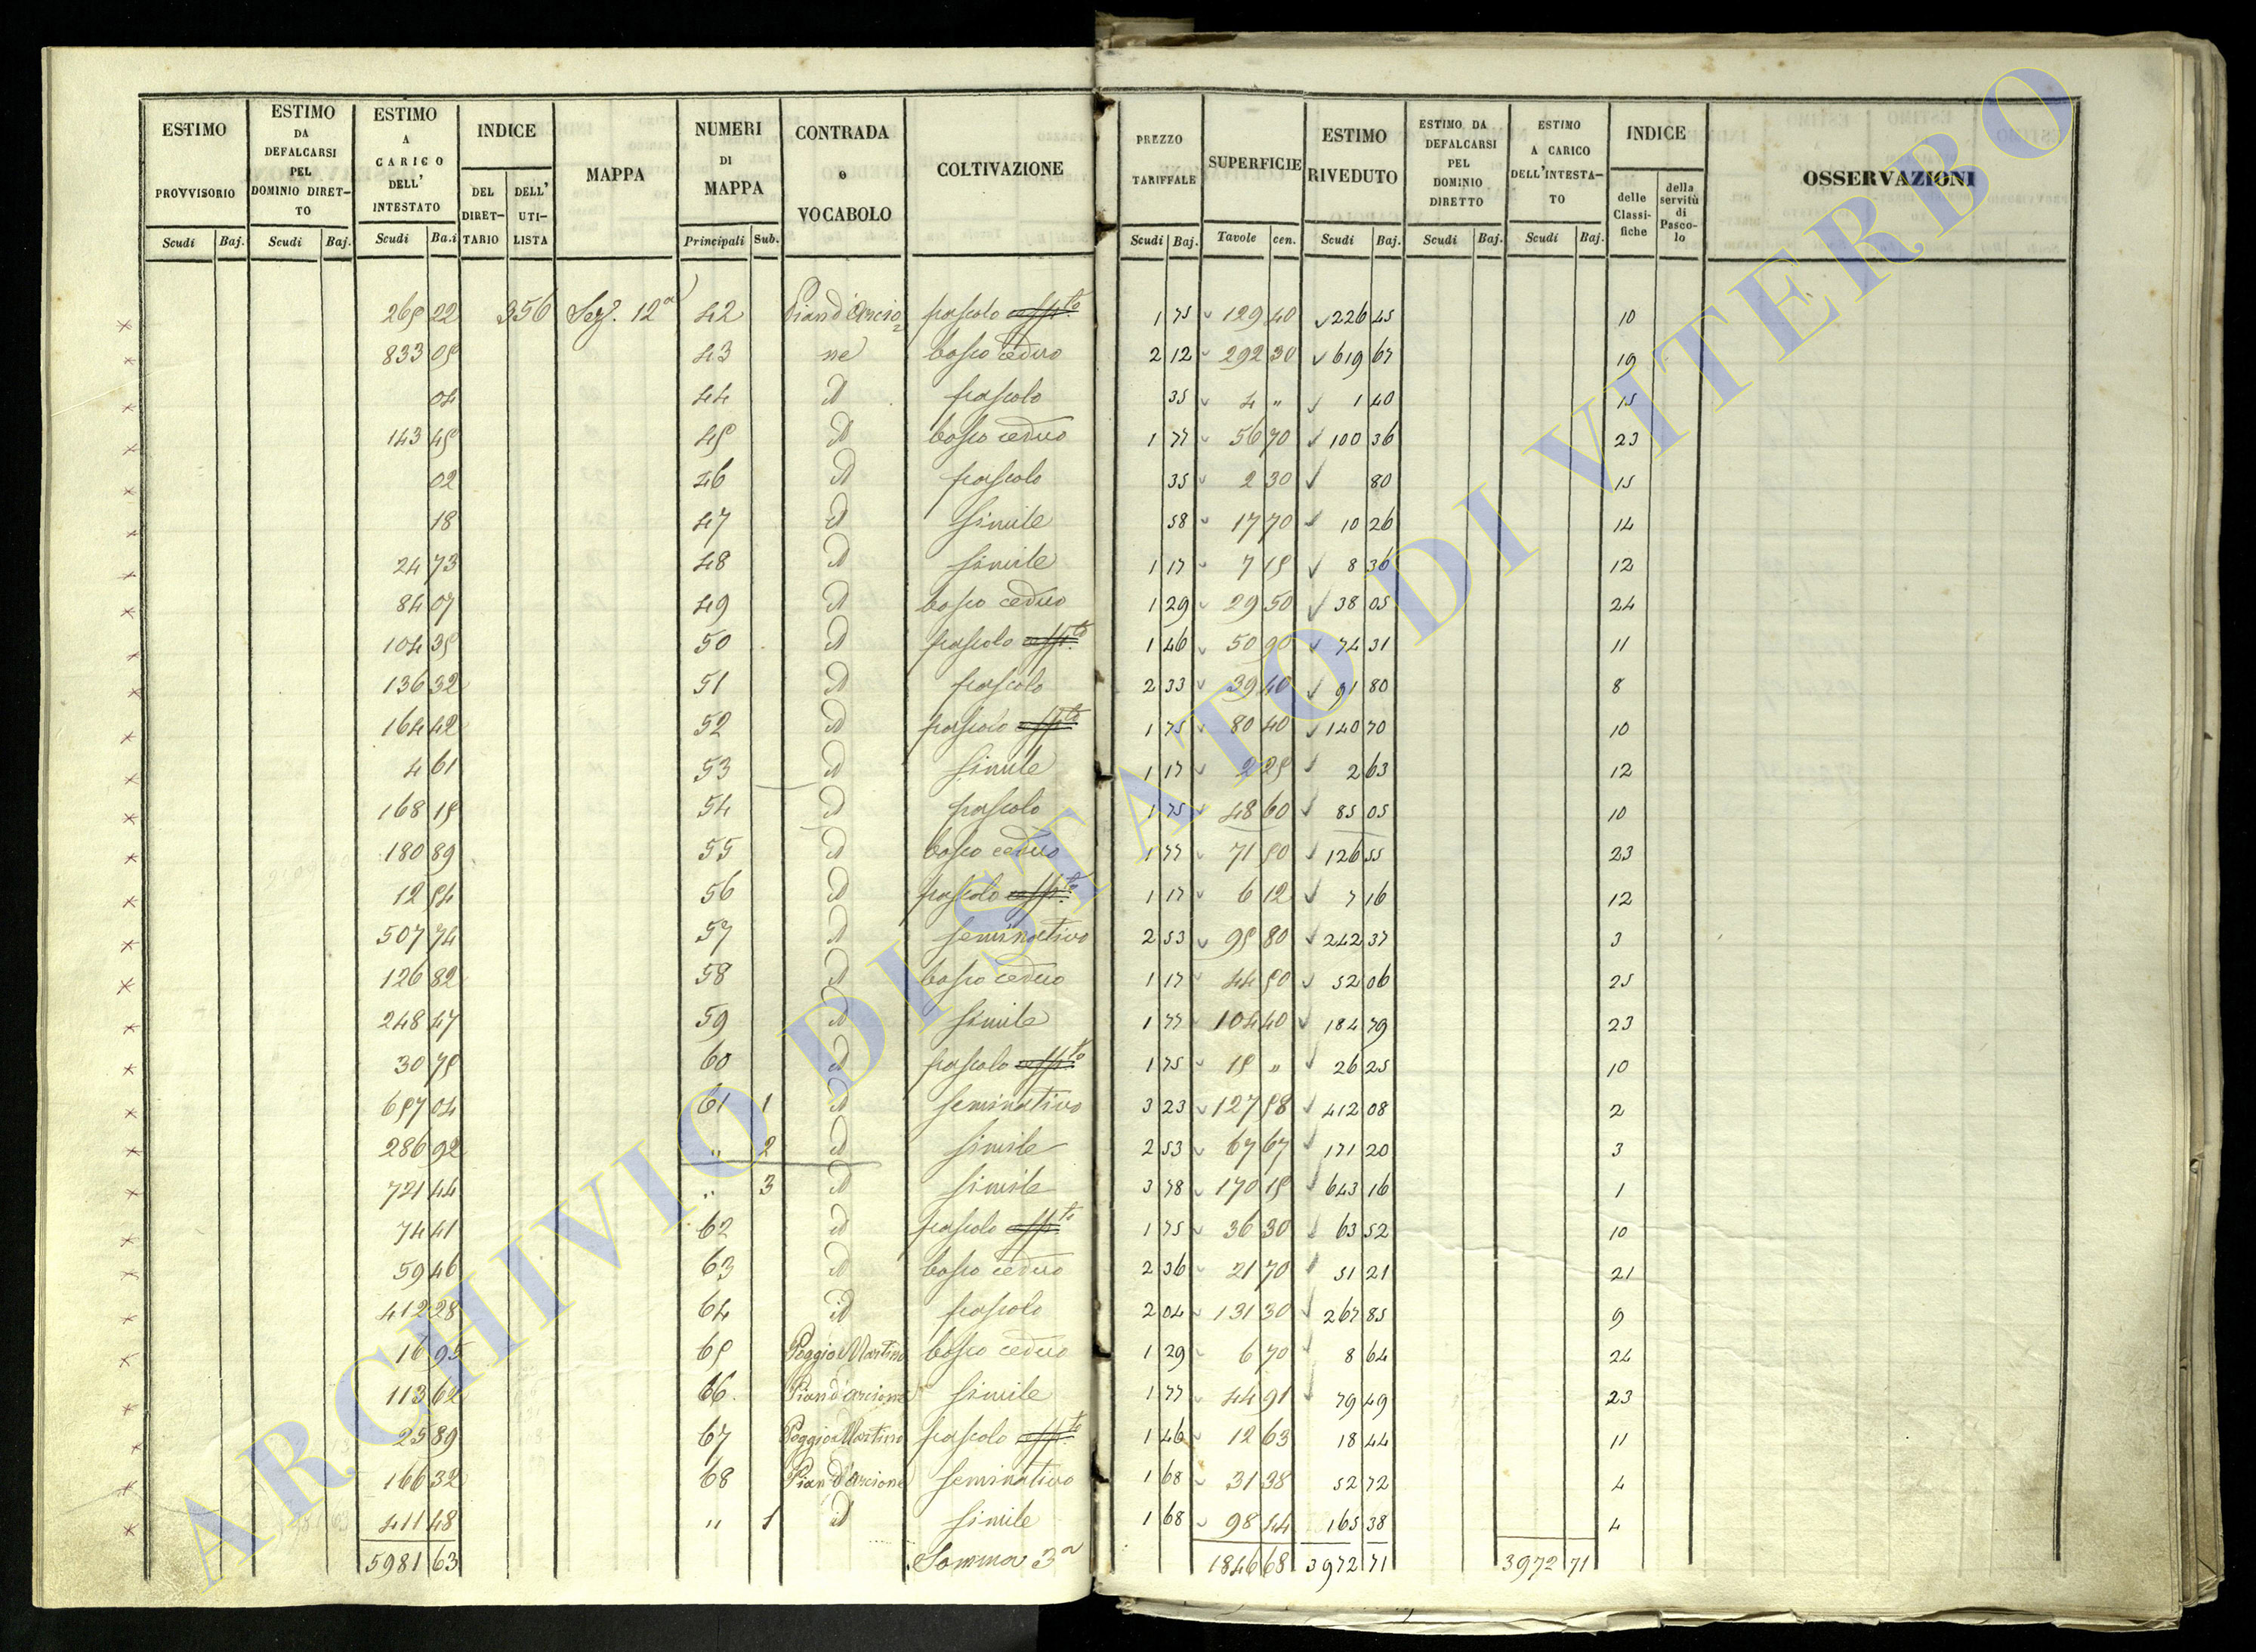 ESTIMO PROVVISORIO | ESTIMO DA DEFALCARSI PEL DOMINIO DIRET-TO | ESTIMO A CARICO DELL' INTESTATO | INDICE | MAPPA | NUMERI DI MAPPA | CONTRADA o VOCABOLO | COLTIVAZIONE | PREZZO TARIFFALE | SUPERFICIE | ESTIMO RIVEDUTO | ESTIMO DA DEFALCARSI PEL DOMINIO DIRETTO | ESTIMO A CARICO DELL'INTESTA-TO | INDICE | OSSERVAZIONI
Scudi | Baj. | Scudi | Baj. | Scudi | Ba.i | DEL DIRET-TARIO | DELL' UTI-LISTA | Principali | Sub. | Scudi | Baj. | Tavole | cen. | Scudi | Baj. | Scudi | Baj. | Scudi | Baj. | delle Classi-fiche | della servitù di Pasco-lo
265 22 | 356 | Sez. 12a | 42 | Pian d'Arcio= | pascolo | 1 75 | 129 40 | 226 45 | 10
833 05 | 43 | ne | bosco ceduo | 2 12 | 292 30 | 619 67 | 19
04 | 44 | id | pascolo | 35 | 4 " | 1 40 | 15
143 45 | 45 | id | bosco ceduo | 1 77 | 56 70 | 100 36 | 23
02 | 46 | id | pascolo | 35 | 2 30 | 80 | 15
18 | 47 | id | simile | 58 | 17 70 | 10 26 | 14
24 73 | 48 | id | simile | 1 17 | 7 15 | 8 36 | 12
84 07 | 49 | id | bosco ceduo | 1 29 | 29 50 | 38 05 | 24
104 35 | 50 | id | pascolo | 1 46 | 50 90 | 74 31 | 11
136 32 | 51 | id | pascolo | 2 33 | 39 40 | 91 80 | 8
164 42 | 52 | id | pascolo | 1 75 | 80 40 | 140 70 | 10
4 61 | 53 | id | simile | 1 17 | 2 25 | 2 63 | 12
168 15 | 54 | id | pascolo | 1 75 | 48 60 | 85 05 | 10
180 89 | 55 | id | bosco ceduo | 1 77 | 71 50 | 126 55 | 23
12 54 | 56 | id | pascolo | 1 17 | 6 12 | 7 16 | 12
507 74 | 57 | id | seminativo | 2 53 | 95 80 | 242 37 | 3
126 82 | 58 | id | bosco ceduo | 1 17 | 44 50 | 52 06 | 25
248 47 | 59 | id | simile | 1 77 | 104 40 | 184 79 | 23
30 75 | 60 | id | pascolo | 1 75 | 15 " | 26 25 | 10
657 04 | 61 | 1 | id | seminativo | 3 23 | 127 58 | 412 08 | 2
286 92 | " | 2 | id | simile | 2 53 | 67 67 | 171 20 | 3
721 44 | " | 3 | id | simile | 3 78 | 170 15 | 643 16 | 1
74 41 | 62 | id | pascolo | 1 75 | 36 30 | 63 52 | 10
59 46 | 63 | id | bosco ceduo | 2 36 | 21 70 | 51 21 | 21
412 28 | 64 | id | pascolo | 2 04 | 131 30 | 267 85 | 9
16 95 | 65 | Poggio Martino | bosco ceduo | 1 29 | 6 70 | 8 64 | 24
113 62 | 66 | Pian d'arcione | simile | 1 77 | 44 91 | 79 49 | 23
25 89 | 67 | Poggio Martino | pascolo | 1 46 | 12 63 | 18 44 | 11
166 32 | 68 | Pian d'arcione | seminativo | 1 68 | 31 38 | 52 72 | 4
411 48 | " | 1 | id | simile | 1 68 | 98 44 | 165 38 | 4
5981 63 | Somma 3a | 1846 68 | 3972 71 | 3972 71
ARCHIVIO DI STATO DI VITERBO